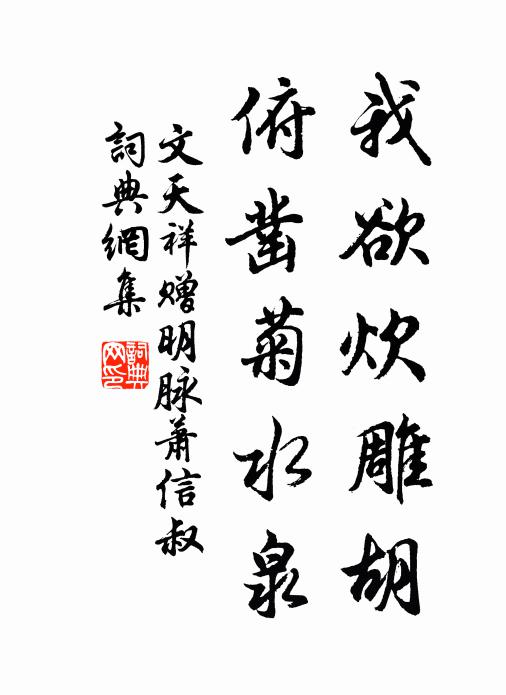 我欲炊雕胡
俯凿菊水泉
文天祥赠明脉萧信叔
詞典網集
詞典网印